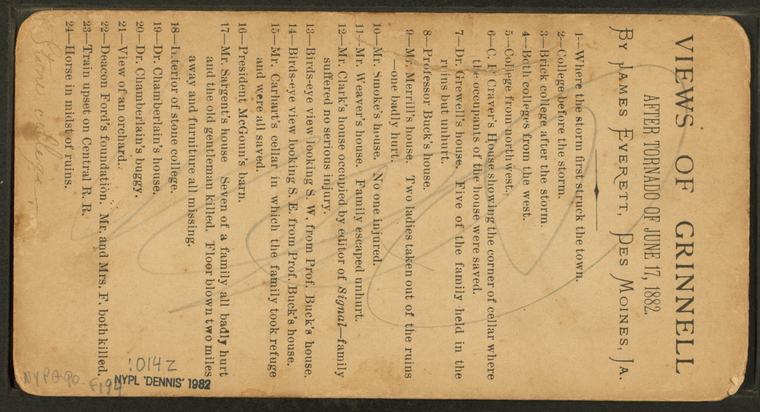 VIEWS OF GRINNELL
AFTER TORNADO OF JUNE 17, 1882.
BY JAMES EVERETT, DES MOINES, IA.
1—Where the storm first struck the town.
2—College before the storm.
3—Brick college after the storm.
4—Both colleges from the west.
5—College from northwest.
6—C. F. Craver's House showing the corner of cellar where
the occupants of the house were saved.
7—Dr. Grewell's house. Five of the family held in the
ruins but unhurt.
8—Professor Buck's house.
9—Mr. Merrill's house. Two ladies taken out of the ruins
—one badly hurt.
10—Mr. Smoke's house. No one injured.
11—Mr. Weaver's house. Family escaped unhurt.
12—Mr. Clark's house occupied by editor of Signal—family
suffered no serious injury.
13—Birds-eye view looking S. W. from Prof. Buck's house.
14—Birds-eye view looking S. E. from Prof. Buck's house.
15—Mr. Carhart's cellar in which the family took refuge
and were all saved.
16—President McGoun's barn.
17—Mr. Sargent's house Seven of a family all badly hurt
and the old gentleman killed. Floor blown two miles
away and furniture all missing.
18—Interior of stone college.
19—Dr. Chamberlain's house.
20—Dr. Chamberlain's buggy.
21—View of an orchard.
22—Deacon Ford's foundation. Mr. and Mrs. F. both killed.
23—Train upset on Central R. R.
24—Horse in midst of ruins.
:0142
NYPL 'DENNIS' 1982